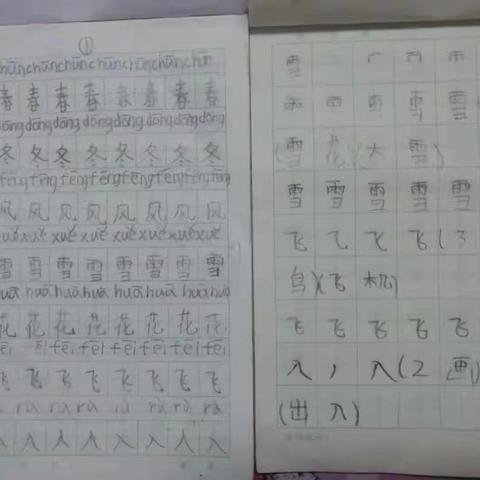 ①
chūn chūn chūn chūn chūn chūn chūn
春 春 春 春 春 春 春 春
dōng dōng dōng dōng dōng dōng dōng dōng
冬 冬 冬 冬 冬 冬 冬 冬
fēng fēng fēng fēng fēng fēng fēng fēng
风 风 风 风 风 风 风 风
xuě xuě xuě xuě xuě xuě xuě xuě
雪 雪 雪 雪 雪 雪 雪 雪
huā huā huā huā huā huā huā huā
花 花 花 花 花 花 花 花
fēi fēi fēi fēi fēi fēi fēi
飞 飞 飞 飞 飞 飞 飞 飞
rù rù rù rù rù rù rù
入 入 入 入 入 入 入 入
雪
雪 雪
(雪 花)(大 雪)
雪 雪 雪 雪 雪
飞 乁 飞 飞 (3
鸟)(飞 机)
飞 飞 飞 飞 飞
入 丿 入 (2 画)
(出 入)